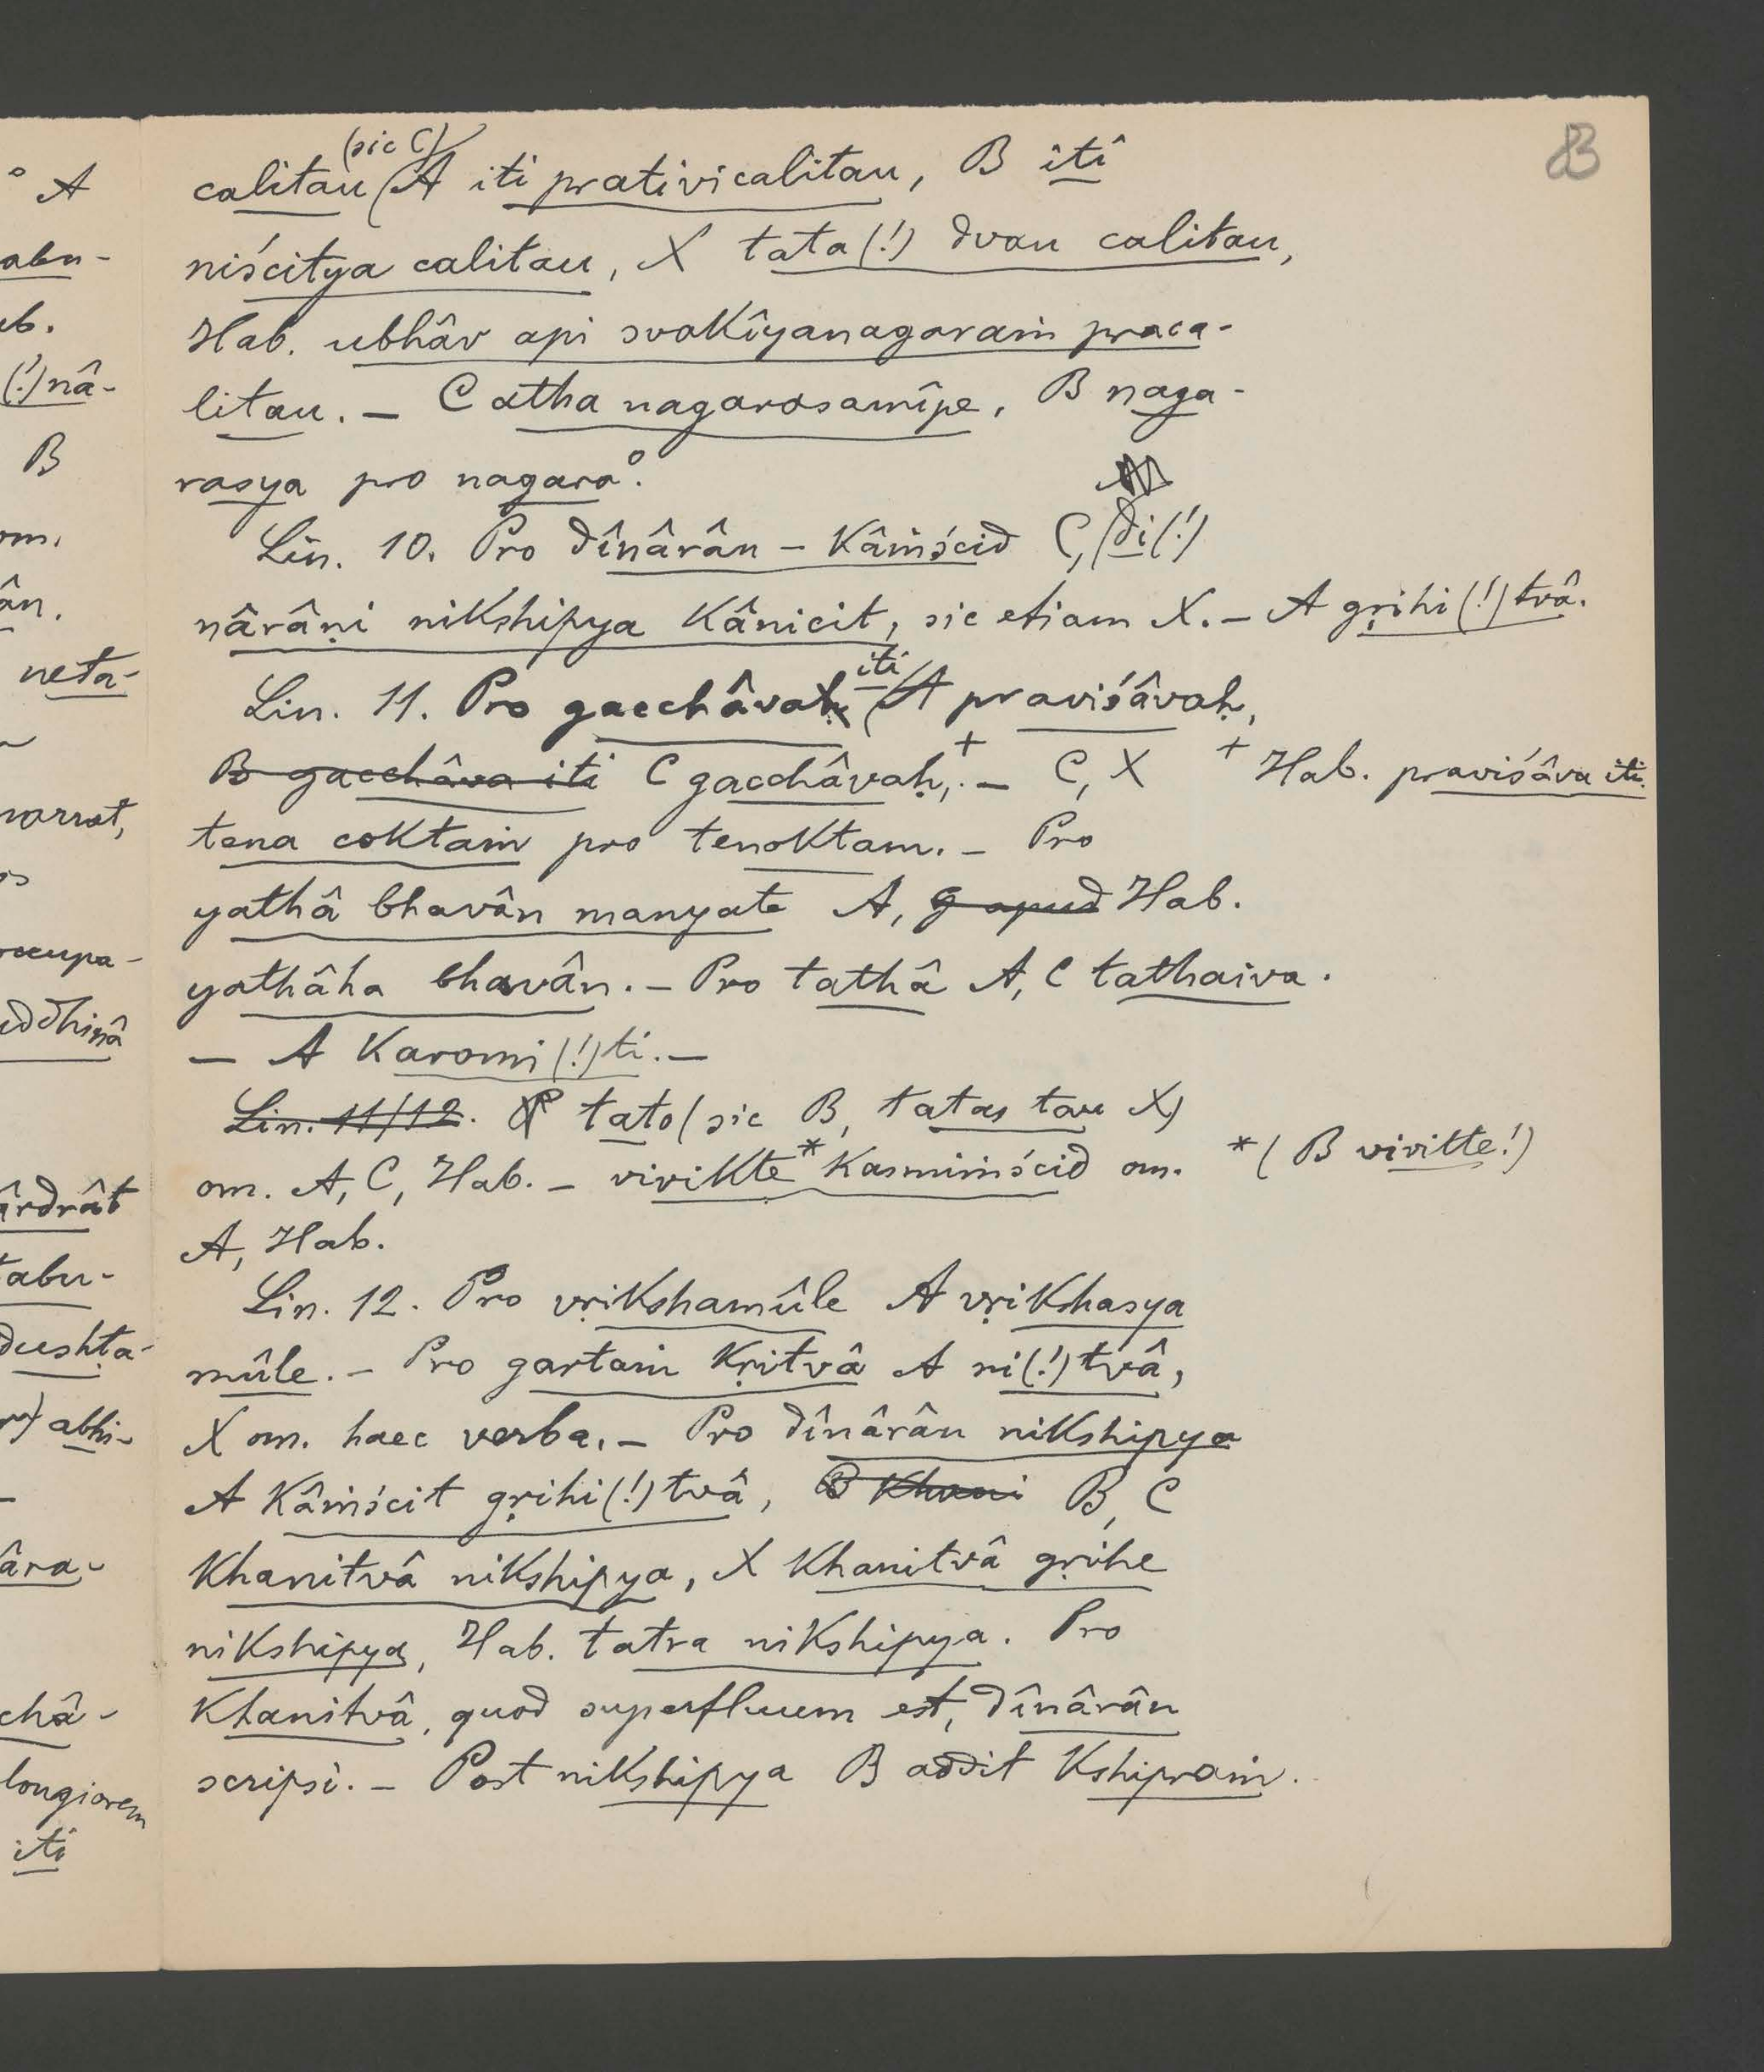 83
calitau (sic C) A iti prativicalitau, B iti
niścitya calitau, X tata(!) dvau calitau,
Hab. ubhâv api svakîyanagaraṁ praca-
litau. – C atha nagarasamîpe, B naga-
rasya pro nagara°.
Lin. 10. Pro dînârân – kâṁścid C, di(!)
nârâṇi nikshipya kânicit, sic etiam X. – A gṛihi(!)tvâ.
Lin. 11. Pro gacchâva iti A praviśâvaḥ,
B gacchâva iti C gacchâvaḥ,+ – C, X
+ Hab. praviśâva iti.
tena coktaṁ pro tenoktam. – Pro
yathâ bhavân manyate A, apud Hab.
yathâha bhavân. – Pro tathâ A, C tathaiva.
– A karomi(!)ti. –
Lin. 11/12. tato (sic B, tatas tau X)
om. A, C, Hab. – vivikte* kasmiṁścid om.
*( B vivitte!)
A, Hab.
Lin. 12. Pro vṛikshamûle A vṛikshasya
mûle. – Pro gartaṁ kṛitvâ A ni(!)tvâ,
X om. haec verba. – Pro dînârân nikshipya
A kâṁścit gṛihi(!)tvâ, B khani B, C
khanitvâ nikshipya, X khanitvâ gṛihe
nikshipya, Hab. tatra nikshipya. Pro
khanitvâ, quod superfluum est, dînârân
scripsi. – Post nikshipya B addit kshipraṁ.
° A
abu-
(!)nâ-
B
om.
ân.
neta-
occupa-
uddhinâ
ârdrât
tabu-
dushṭa-
abhi-
âra-
châ-
longiorem
iti